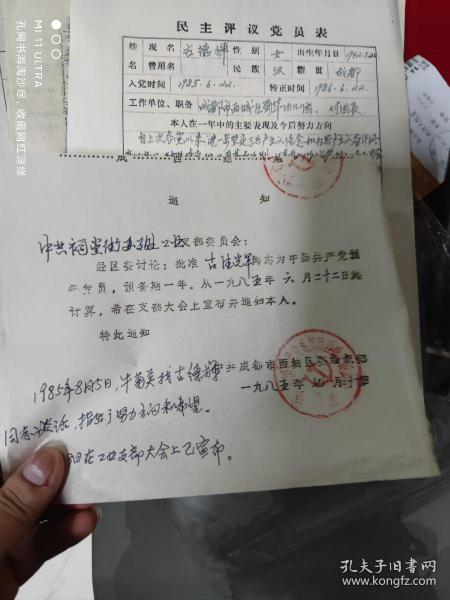 民主评议党员表
姓 现名 古德辉 性别 女 出生年月日
名 曾用名 民族 汉 籍贯 成都
入党时间 1985.6.22. 转正时间 1986.6.22.
工作单位、职务 成都市西城区
本人在一年中的主要表现及今后努力方向
通 知
中共祠堂街 工业支部委员会：
经区委讨论：批准 古德辉 同志为中国共产党预
备党员，预备期一年。从一九八五年 六 月 二十二日起
计算，希在支部大会上宣布并通知本人。
特此通知
中共成都市西城区委组织部
一九八五年 月 十 日
1985年8月5日，牛菊英找古德辉
同志谈话，指出了努力方向和希望。
日在工业支部大会上已宣布。
孔网书海淘沙尽，收藏阿红源缘
MI 11 ULTRA
孔夫子旧书网
www.kongfz.com